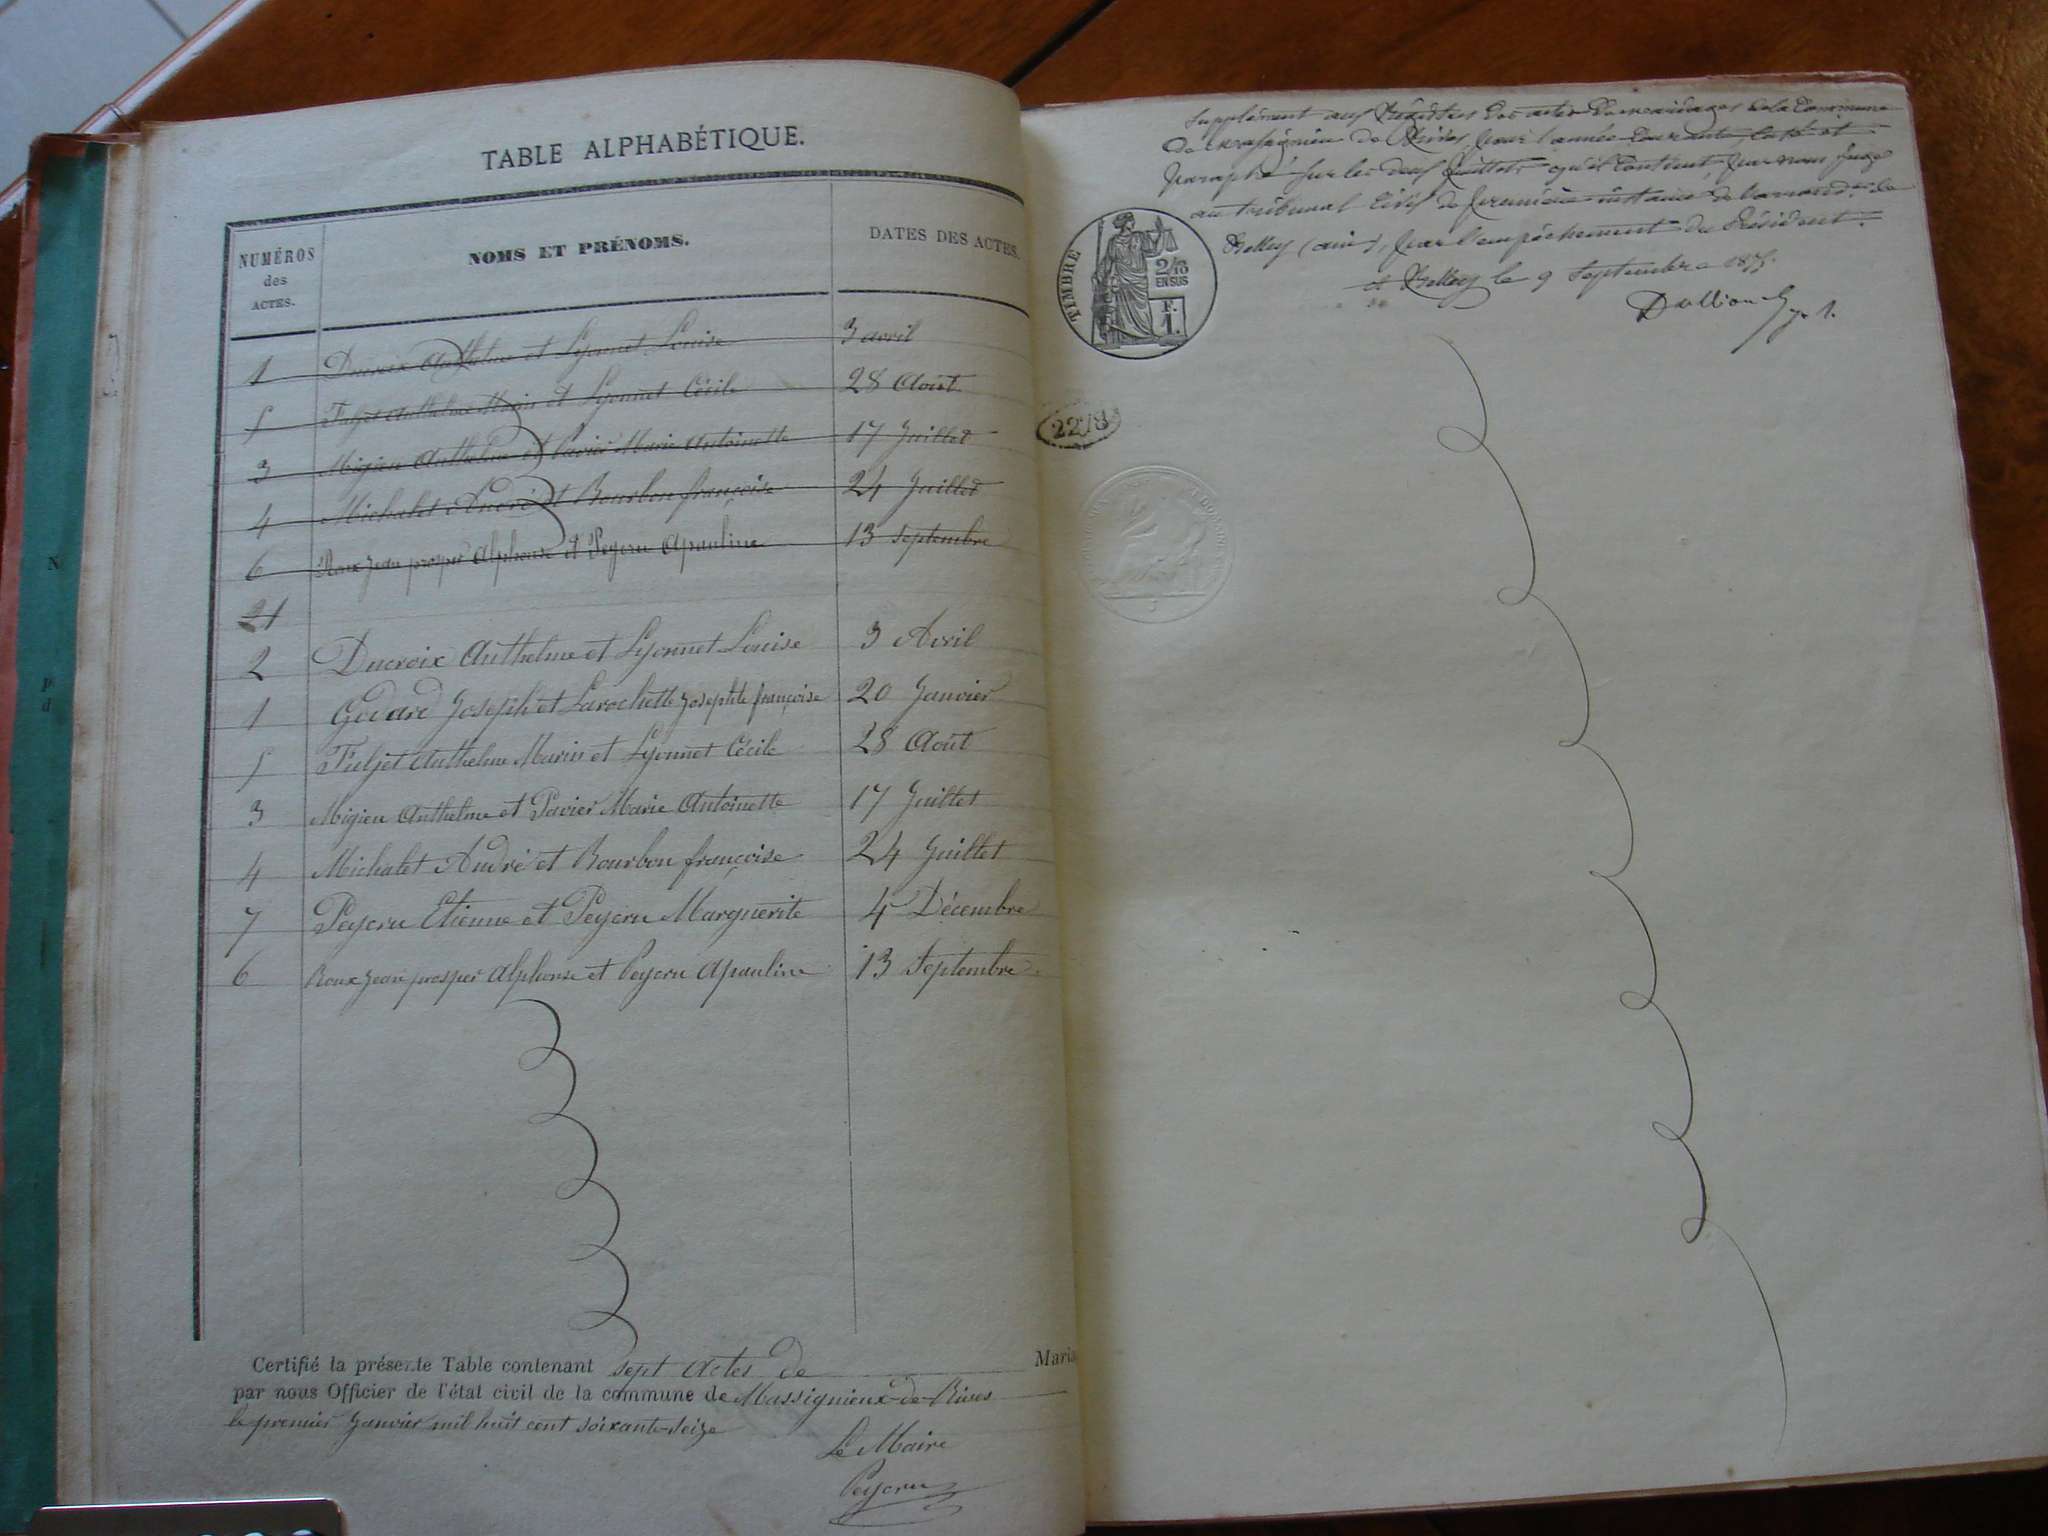 TABLE ALPHABÉTIQUE.
NUMÉROS des ACTES. NOMS ET PRÉNOMS. DATES DES ACTES.
1 Ducroix Anthelme et Lyonnet Louise 3 avril
5 Fuljet Anthelme Marin et Lyonnet Cécile 28 Août
3 Migieu Anthelme et Pavier Marie Antoinette 17 Juillet
4 Michalet André et Bourbon françoise 24 Juillet
6 Roux Jean prosper Alphonse et Peycru Apauline 13 Septembre
21
2 Ducroix Anthelme et Lyonnet Louise 3 Avril
1 Godard Joseph et Larochette Josephte françoise 20 Janvier
5 Fuljet Anthelme Marin et Lyonnet Cécile 28 Août
3 Migieu Anthelme et Pavier Marie Antoinette 17 Juillet
4 Michalet André et Bourbon françoise 24 Juillet
7 Peycru Etienne et Peycru Marguerite 4 Décembre
6 Roux Jean prosper Alphonse et Peycru Apauline 13 Septembre
Certifié la présente Table contenant sept actes de Maria
par nous Officier de l'état civil de la commune de Massignieux-de-Rives
le premier Janvier mil huit cent soixante-seize
Le Maire
Peycru
Supplément aux Régistres des actes de mariages de la Commune
de Massignieu de Rives, pour l'année courante, coté et
paraphé sur les deux feuillets qu'il contient, par nous Juge
au tribunal Civil de première instance de l'arrond.t de
Belley (ain), par l'empêchement du Président.
A Belley le 9 Septembre 1875.
TIMBRE
2/10
EN SUS
F.
1.
22/8